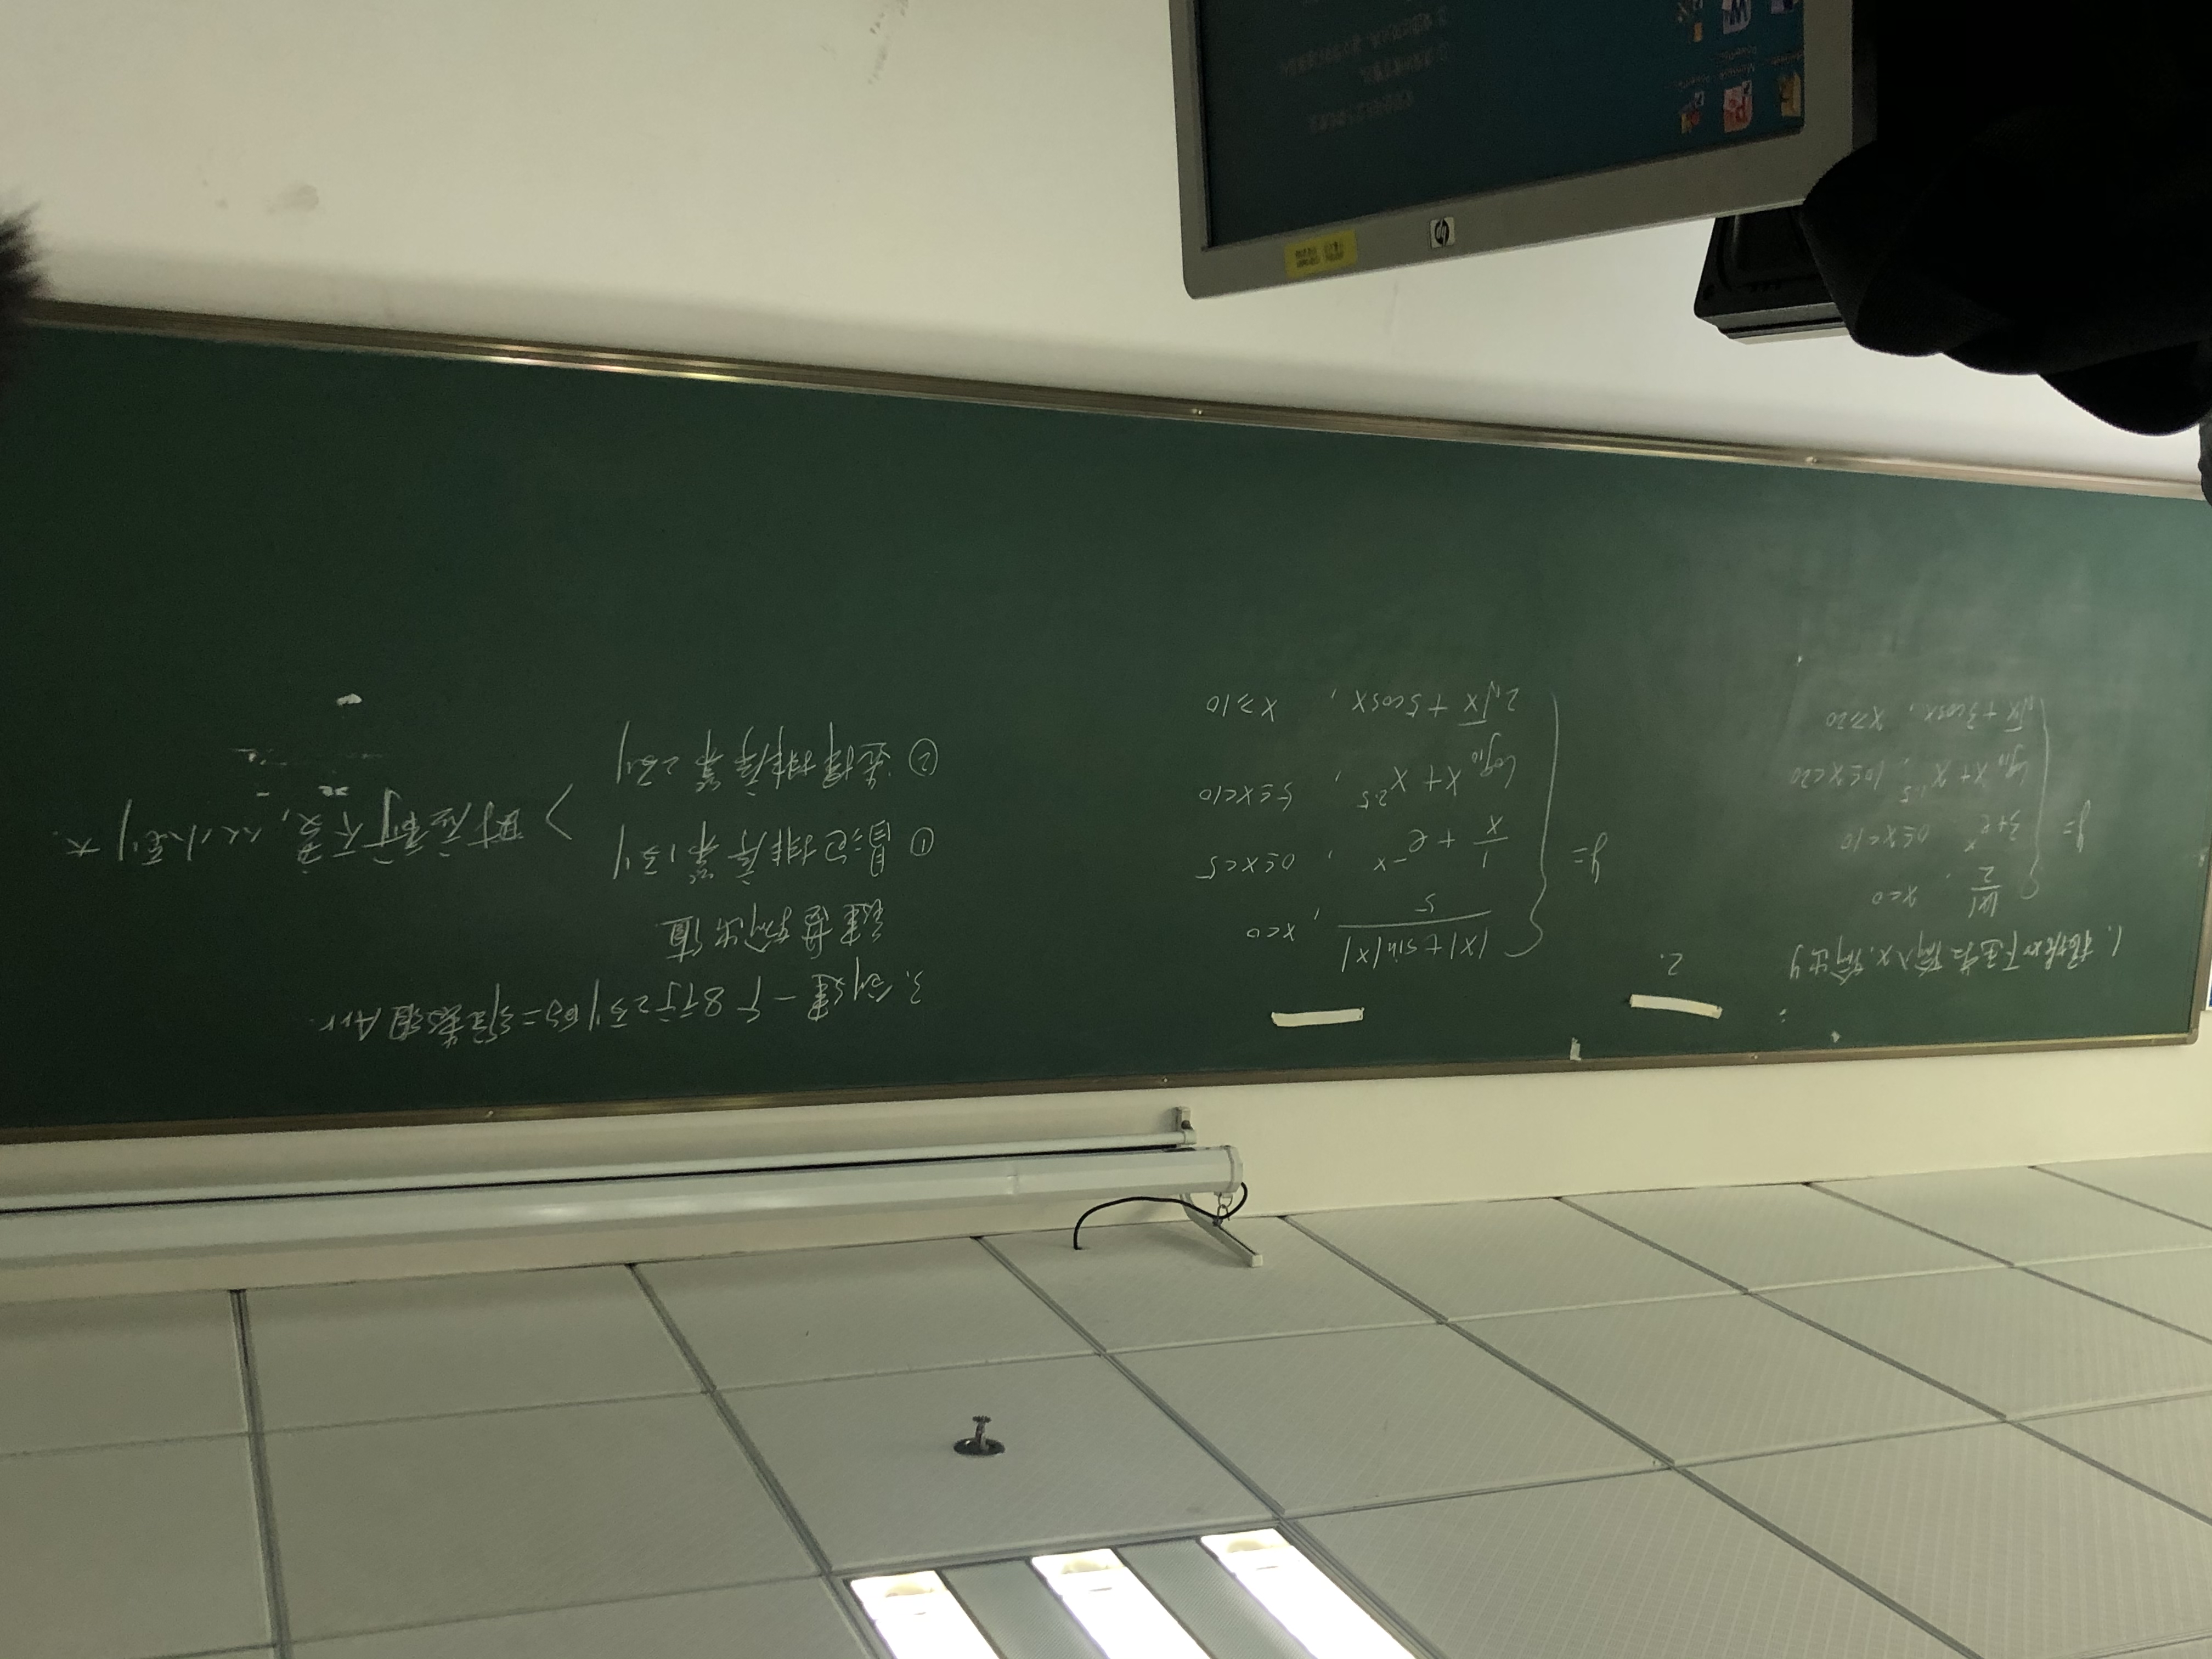 1. 根据如下函数输入x,输出y
y=
|x|/2, x<0
3+e^x 0≤x<10
log₁₀x+x^1.5, 10≤x<20
√x+3cosx, x≥20
2.
y=
(|x|+sin|x|)/5, x<0
1/x+e^-x, 0≤x<5
log₁₀x+x^2.5, 5≤x<10
2√x+5cosx, x≥10
3. 创建一个8行2列的二维数组Arr.
键盘输出值.
① 冒泡排序第1列
② 选择排序第2列
> 对应行不变,从小到大.
hp